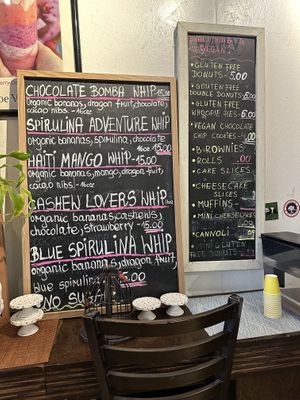 CHOCOLATE BOMBA WHIP 15.00
Organic bananas, dragon fruit, chocolate,
cacao nibs. -16oz
SPIRULINA ADVENTURE WHIP
organic bananas, spirulina, chocolate
15.00
HAITI MANGO WHIP -15.00
organic bananas, mango, dragon fruit,
cacao nibs -16oz
CASHEW LOVERS WHIP
organic bananas, cashews,
chocolate, strawberry -15.00
BLUE SPIRULINA WHIP
organic bananas, dragon fruit,
blue spirulina 15.00
NO
VEGAN
• GLUTEN FREE
DONUTS - 5.00
• GLUTEN FREE
DOUBLE DONUTS
• GLUTEN FREE
WHOOPIE PIES - 6.00
• VEGAN CHOCOLATE
CHIP COOKIES
• BROWNIES
• ROLLS
• CAKE SLICES
• CHEESECAKE
SLICES
• MUFFINS
• MINI CHEESECAKES
• CANNOLI
• MINI GLUTEN
FREE DONUTS